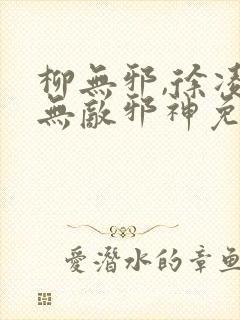 柳無邪,徐凌
無敵邪神免
愛潛水的章魚